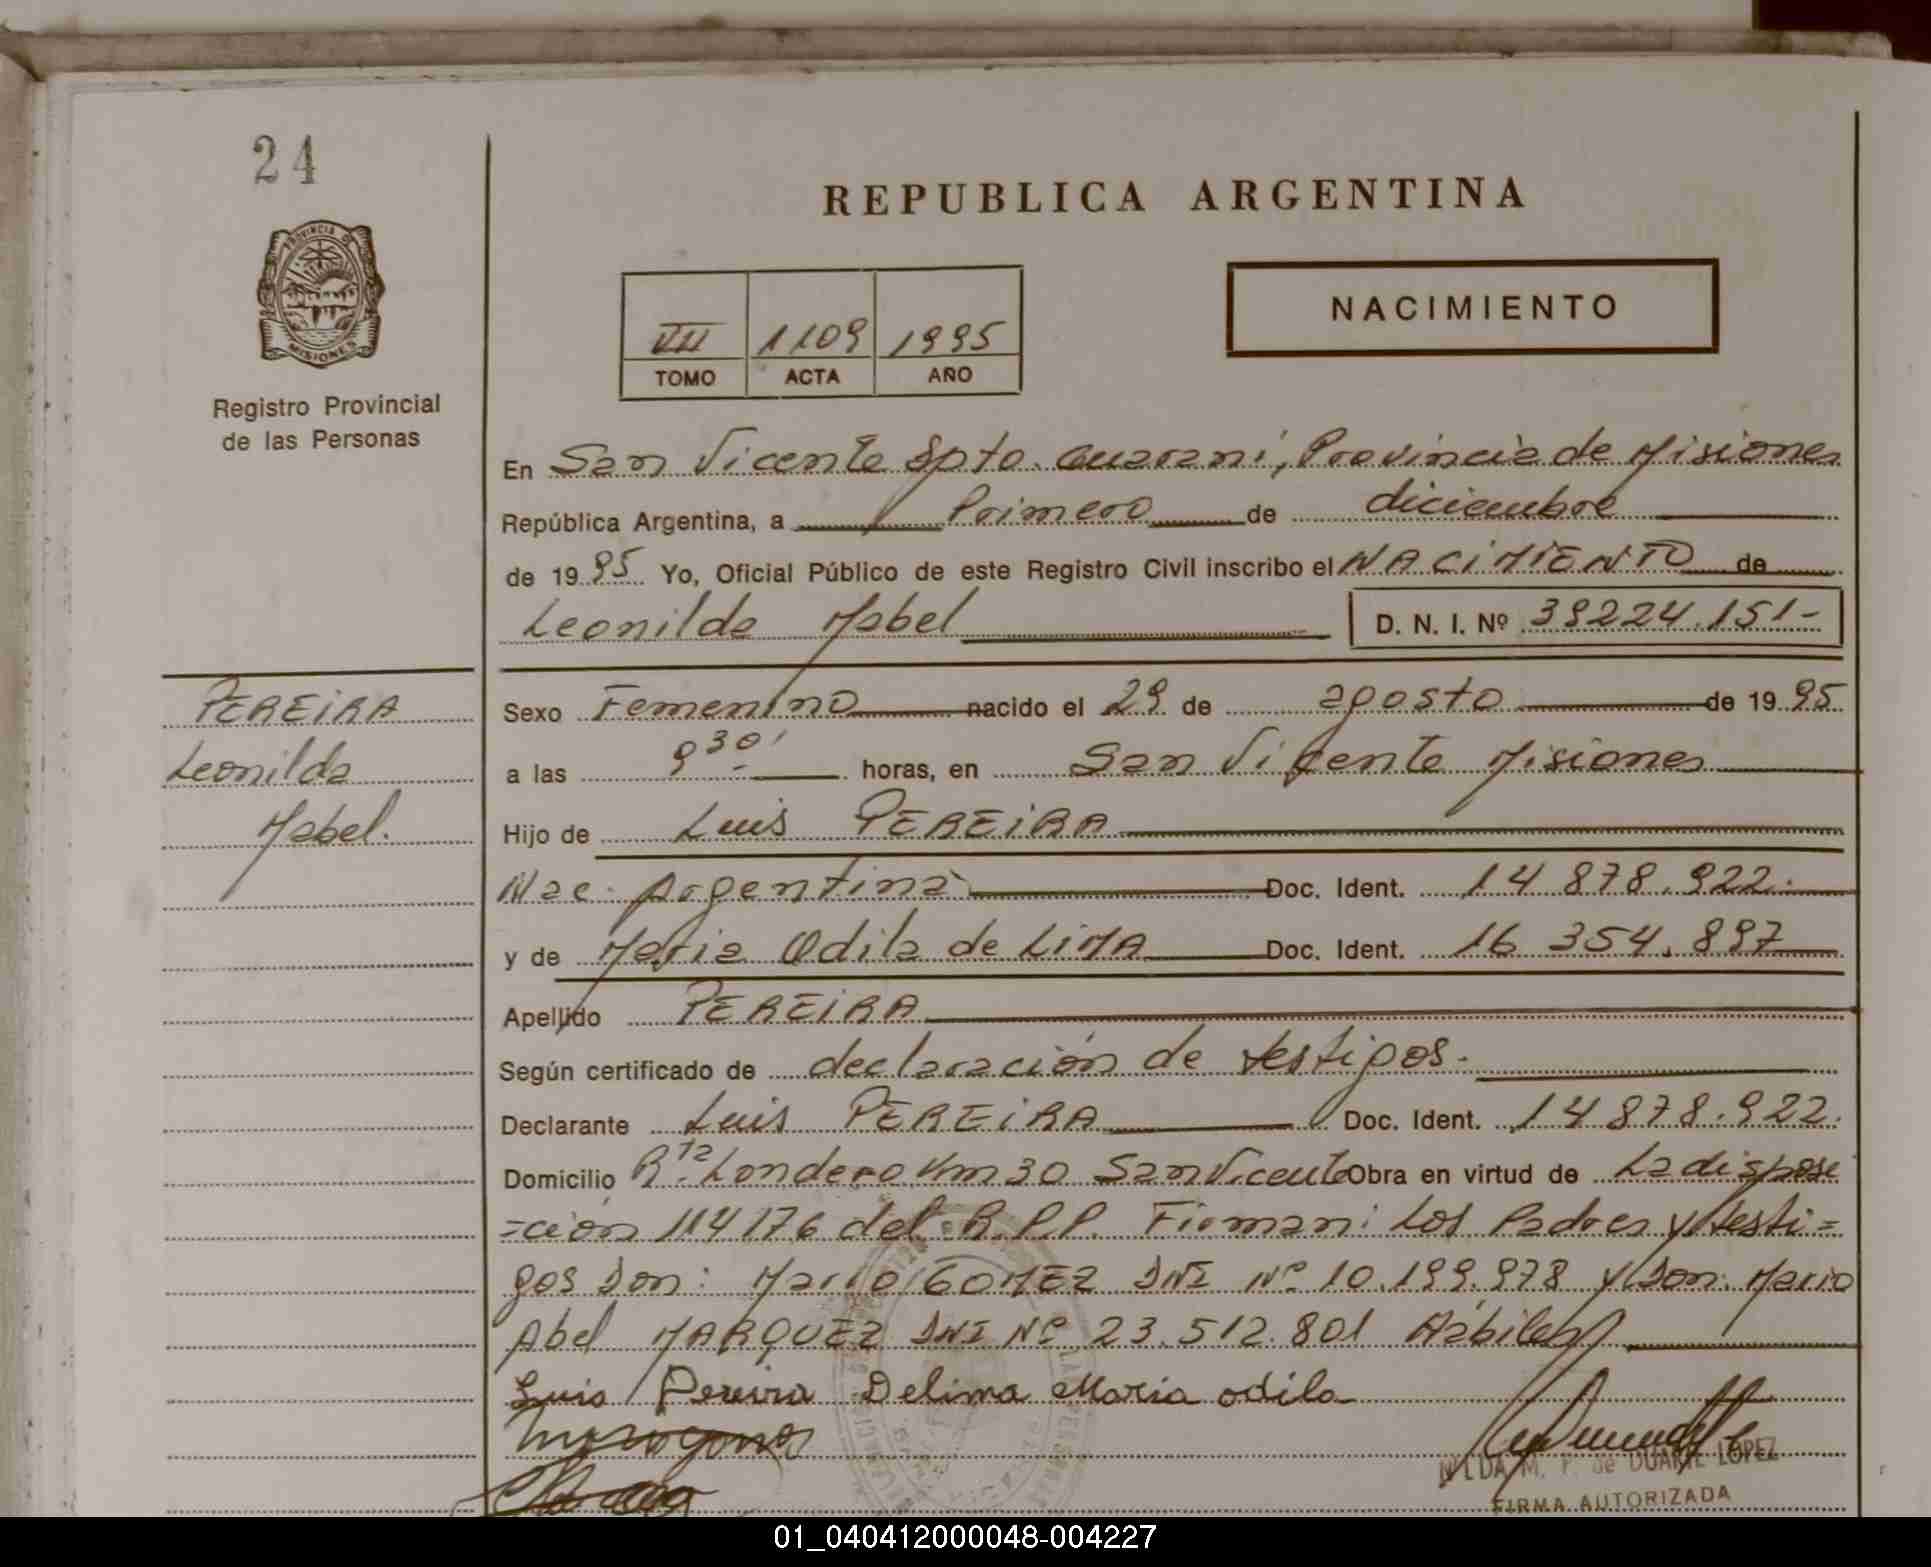 24
REPUBLICA ARGENTINA
PROVINCIA DE
MISIONES
Registro Provincial
de las Personas
NACIMIENTO
VII 1109 1995
TOMO ACTA AÑO
En San Vicente Dpto. Guaraní, Provincia de Misiones
República Argentina, a Primero de diciembre
de 1995 Yo, Oficial Público de este Registro Civil inscribo el NACIMIENTO de
Leonilda Mabel D. N. I. Nº 39224.151-
PEREIRA
Leonilda
Mabel.
Sexo Femenino nacido el 29 de agosto de 1995
a las 9 30' horas, en San Vicente Misiones
Hijo de Luis PEREIRA
Nac. Argentina Doc. Ident. 14 878.922.
y de Maria Odila de LIMA Doc. Ident. 16 354.897
Apellido PEREIRA
Según certificado de declaración de testigos.
Declarante Luis PEREIRA Doc. Ident. 14 878.922.
Domicilio R. Londero Km 30 San Vicente Obra en virtud de La disposi
=ción 114176 del R.P.P. Firman: Los Padres y testi=
gos Don: Mario GOMEZ DNI Nº 10.199.978 y Don: Mario
Abel MARQUEZ DNI Nº 23.512.801 Hábiles
Luis Pereira Delima Maria odila
NILDA M. F. de DUARTE LOPEZ
FIRMA AUTORIZADA
01_040412000048-004227